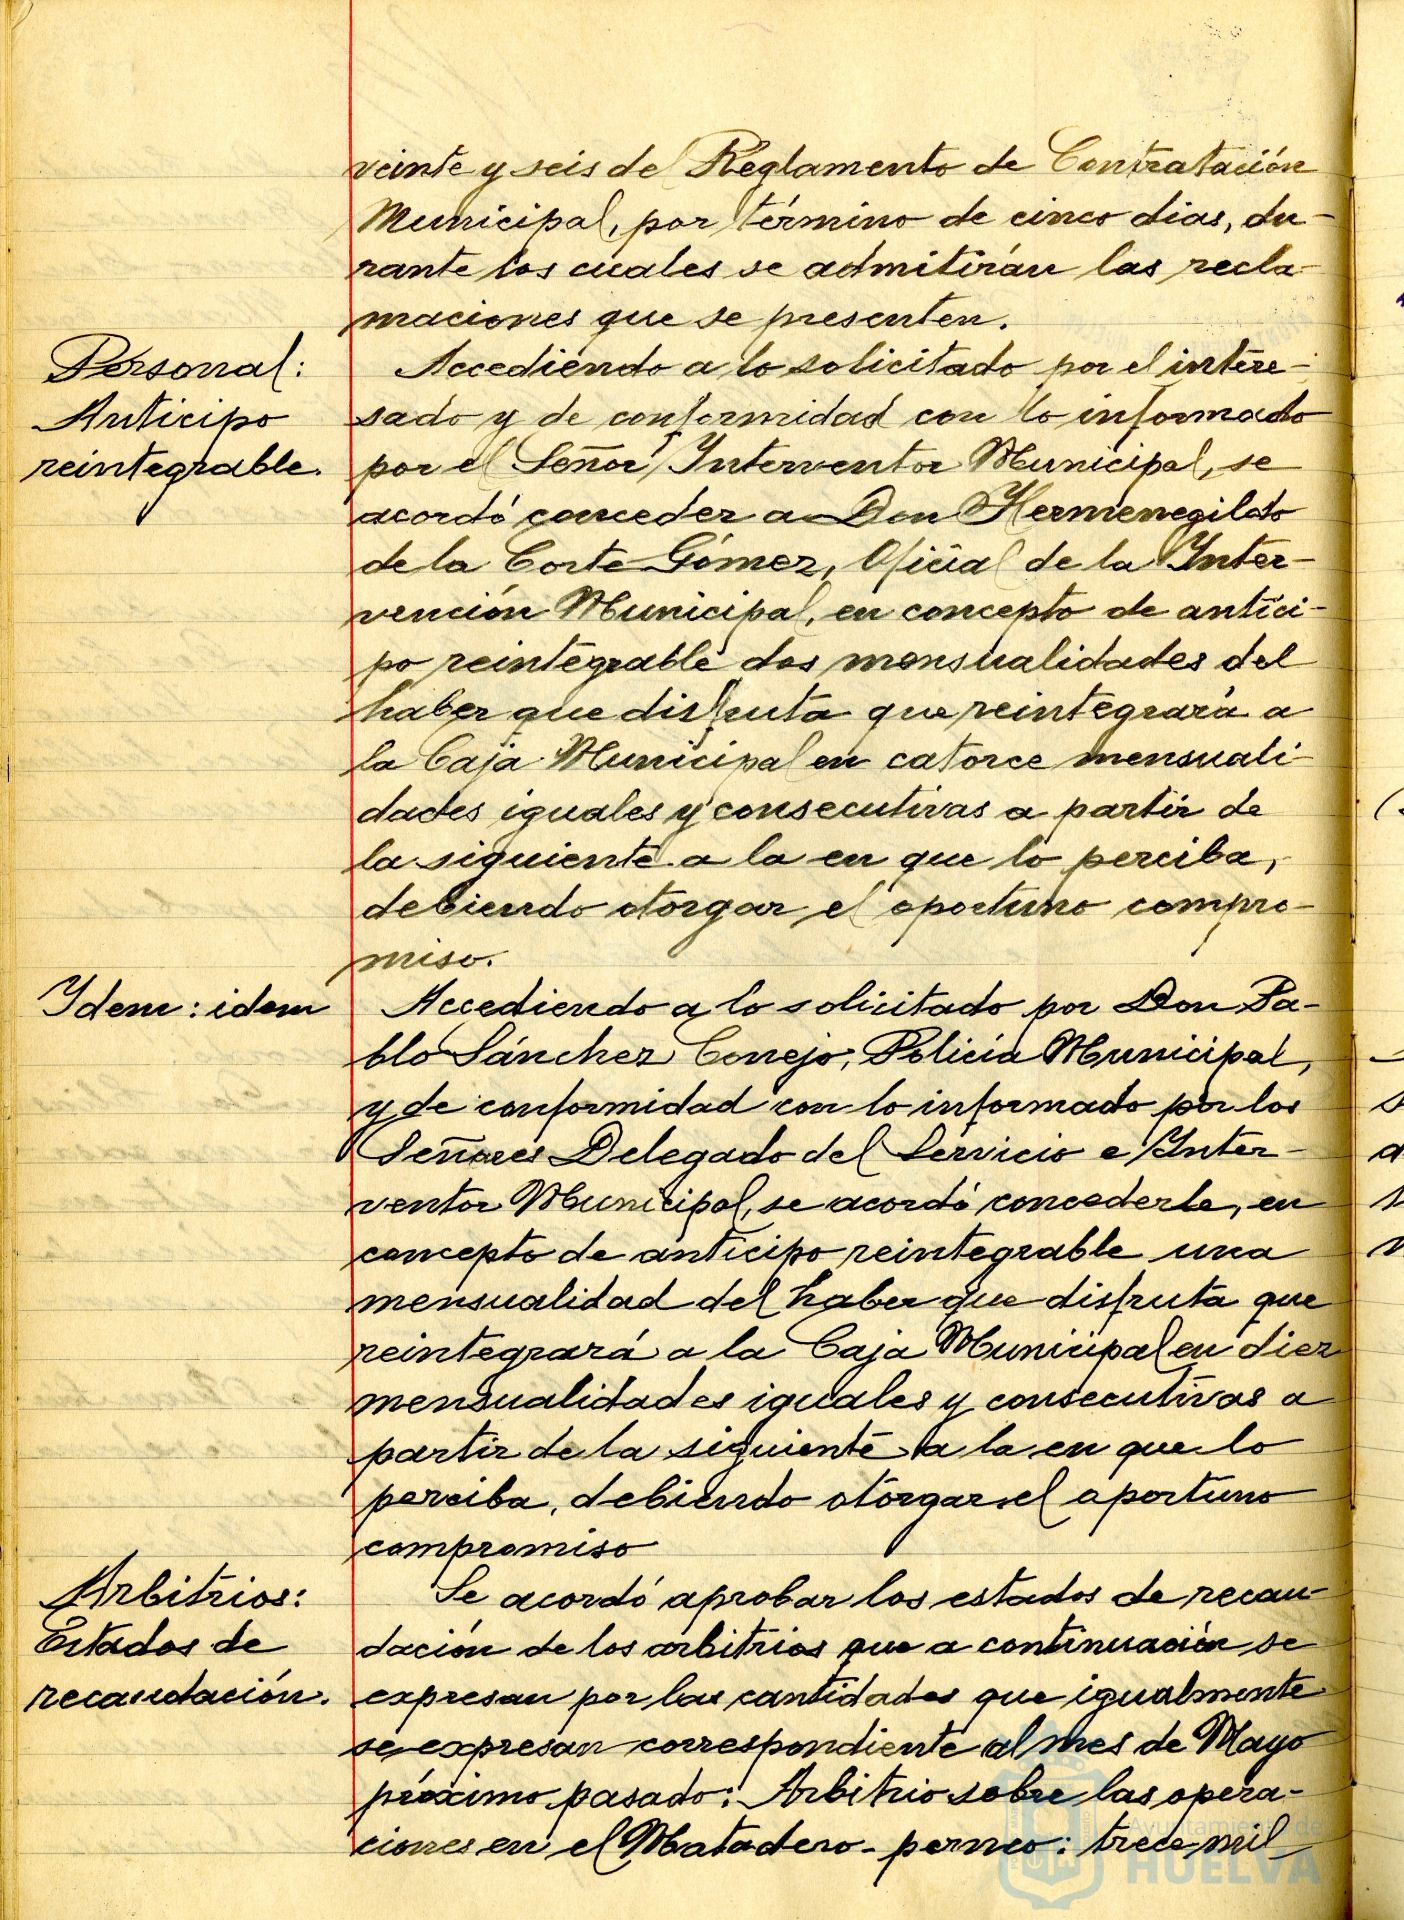 veinte y seis del Reglamento de Contratación
Municipal, por término de cinco dias, du-
rante los cuales se admitirán las recla-
maciones que se presenten.
Personal:
Anticipo
reintegrable.
Accediendo a lo solicitado por el intere-
sado y de conformidad con lo informado
por el Señor Interventor Municipal, se
acordó conceder a Don Hermenegildo
de la Corte Gómez, Oficial de la Inter-
vención Municipal, en concepto de antici-
po reintegrable dos mensualidades del
haber que disfruta que reintegrará a
la Caja Municipal en catorce mensuali-
dades iguales y consecutivas a partir de
la siguiente a la en que lo perciba,
debiendo otorgar el oportuno compro-
miso.
Idem: idem
Accediendo a lo solicitado por Don Pa-
blo Sánchez Conejo, Policía Municipal,
y de conformidad con lo informado por los
Señores Delegado del Servicio e Inter-
ventor Municipal, se acordó concederle, en
concepto de anticipo reintegrable una
mensualidad del haber que disfruta que
reintegrará a la Caja Municipal en diez
mensualidades iguales y consecutivas a
partir de la siguiente a la en que lo
perciba, debiendo otorgar el oportuno
compromiso
Arbitrios:
Estados de
recaudación.
Se acordó aprobar los estados de recau-
dación de los arbitrios que a continuación se
expresan por las cantidades que igualmente
se expresan correspondiente al mes de Mayo
próximo pasado: Arbitrio sobre las opera-
ciones en el Matadero-perneo: trece mil
Ayuntamiento de
HUELVA